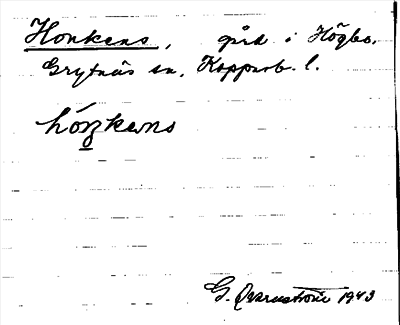 Honkens, gård i Högbo,
Grytnäs sn, Kopparb. l.
hóŋkens
G. Qvarnström 1943